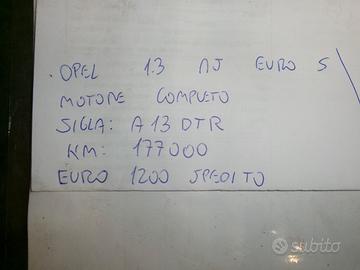 OPEL 1.3 MJ EURO 5
MOTORE COMPLETO
SIGLA: A13DTR
KM: 177000
EURO 1200 SPEDITO
subito